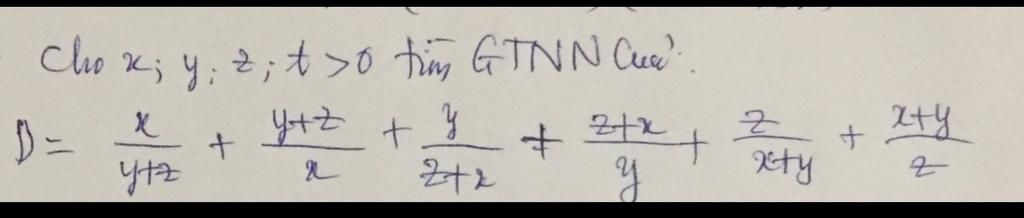 Cho x; y; z; t > 0 tìm GTNN Của:
D = x/(y+z) + (y+z)/x + y/(z+x) + (z+x)/y + z/(x+y) + (x+y)/z